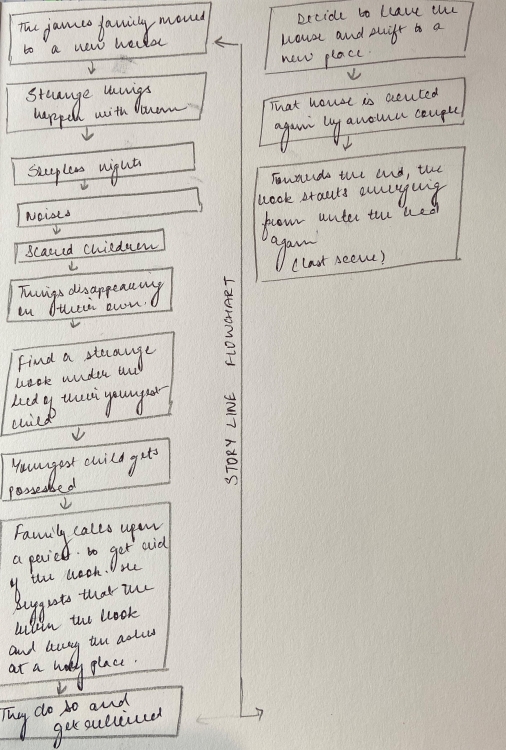 The james family moved
to a new house
Strange things
happen with them
Sleepless nights
Noises
Scared children
Things disappearing
on their own.
Find a strange
book under the
bed of their youngest
child
Youngest child gets
possessed
Family calls upon
a priest to get rid
of the book. He
suggests that the
burn the book
and bury the ashes
at a holy place.
They do so and
get relieved
STORY LINE FLOWCHART
Decide to leave the
house and shift to a
new place.
That house is rented
again by another couple
Towards the end, the
book starts emerging
from under the bed
again
(last scene)